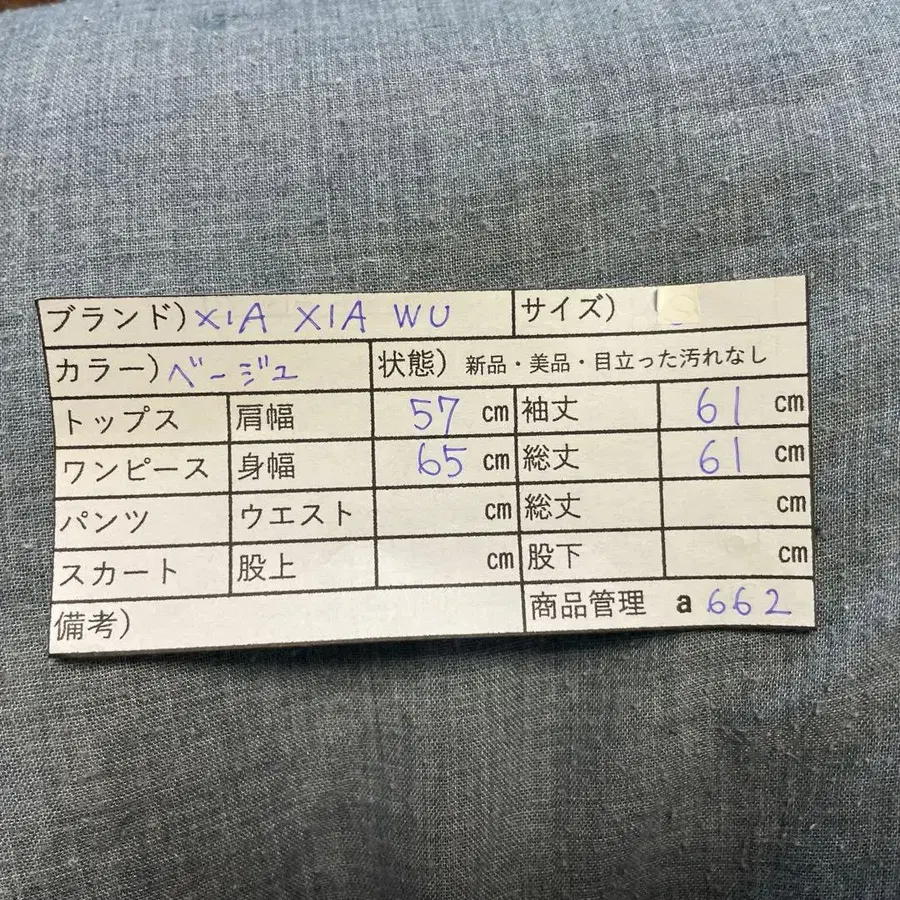 ブランド) XIA XIA WU サイズ)
カラー) ベージュ 状態) 新品・美品・目立った汚れなし
トップス 肩幅 57 cm 袖丈 61 cm
ワンピース 身幅 65 cm 総丈 61 cm
パンツ ウエスト cm 総丈 cm
スカート 股上 cm 股下 cm
備考) 商品管理 a 662